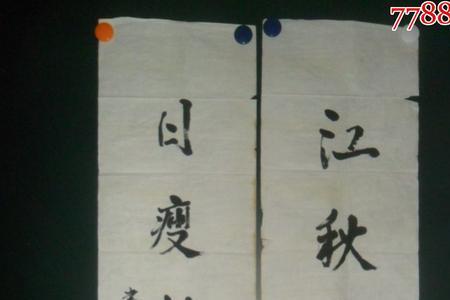 7788
江秋
日瘦